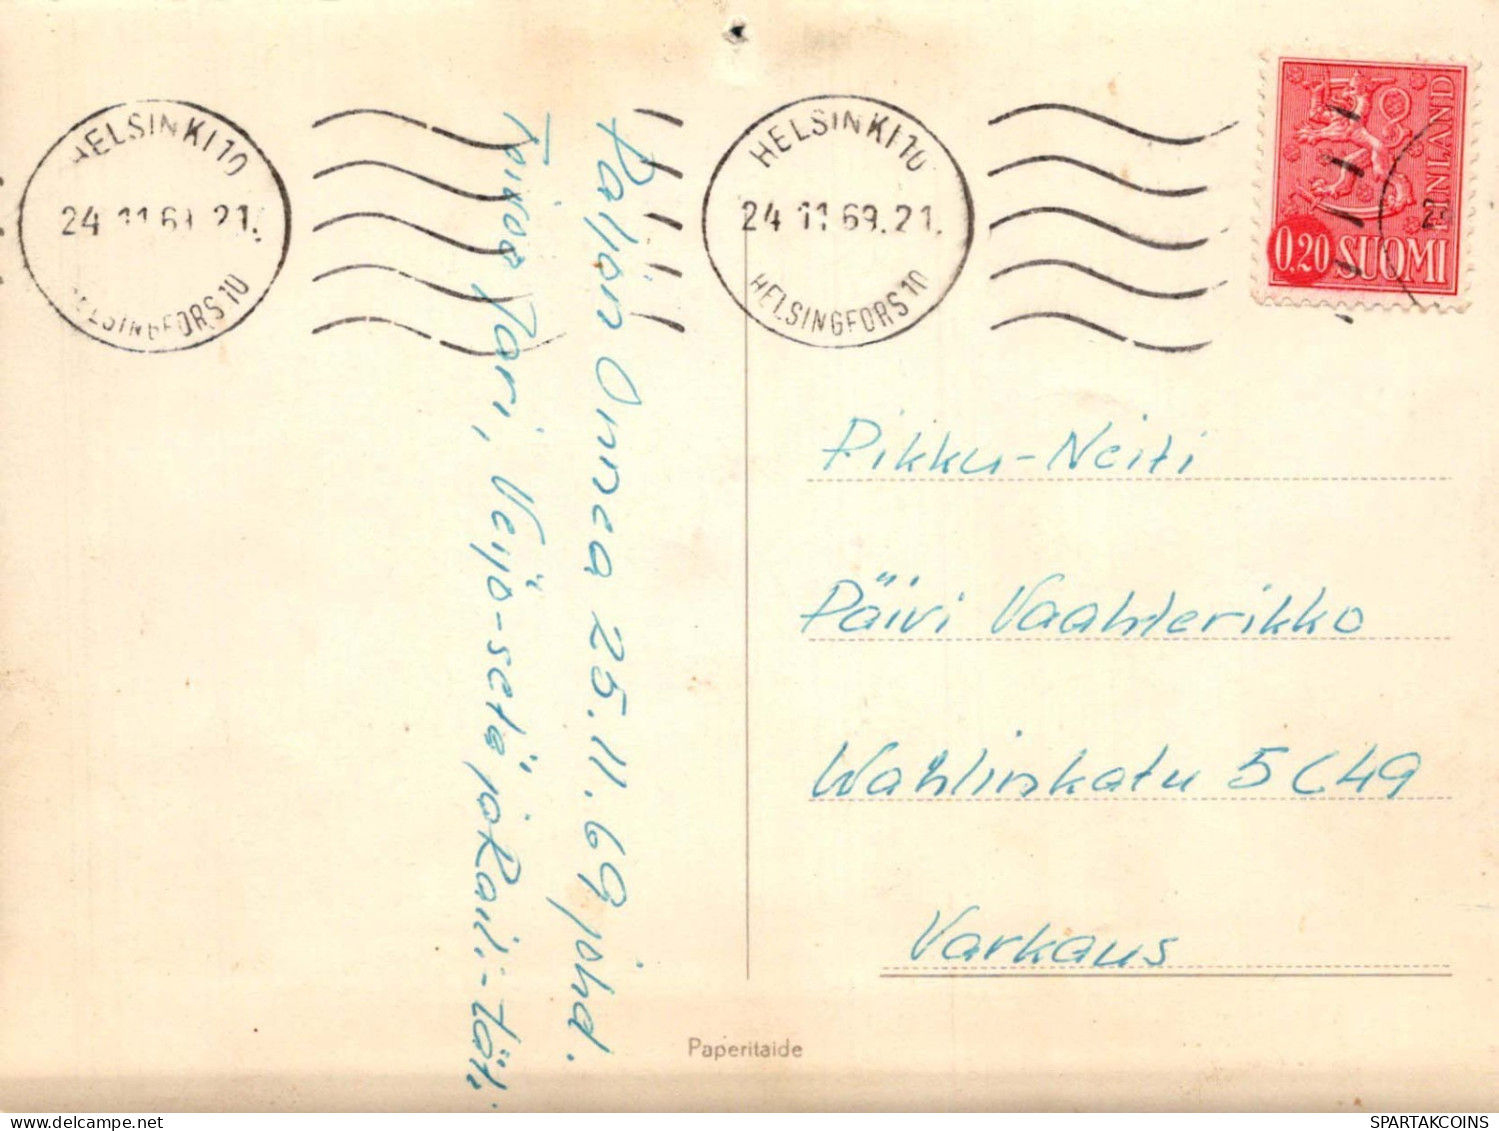 HELSINKI 10
24 11 69. 21.
HELSINGFORS 10
HELSINKI 10
24 11 69. 21.
HELSINGFORS 10
FINLAND
0,20 SUOMI
Paljon Onnea 25.11.69 joht.
Toivoo Pari, Veijo-setä ja Raili-täti.
Pikku-Neiti
Päivi Vaahterikko
Wahlinkatu 5 C 49
Varkaus
Paperitaide
delcampe.net
SPARTAKCOINS